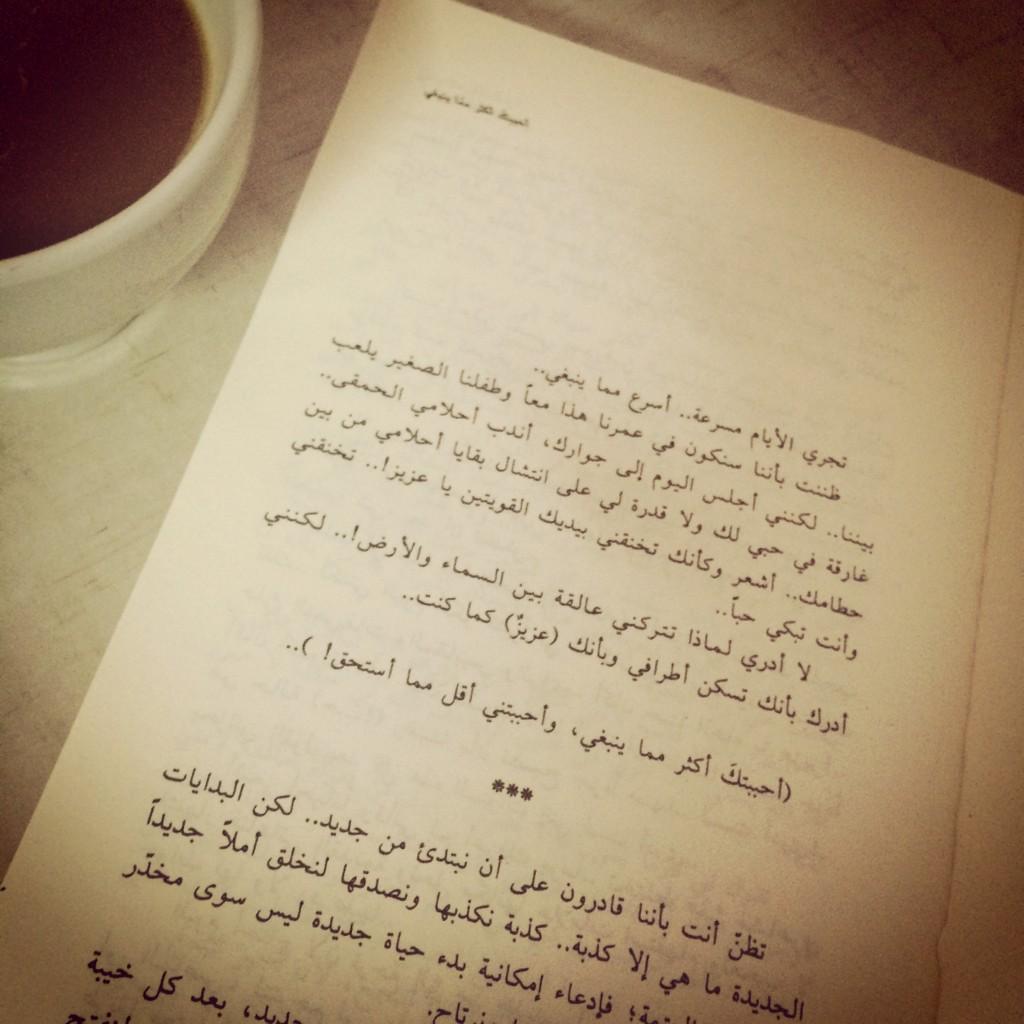 أحببتك أكثر مما ينبغي
تجري الأيام مسرعة.. أسرع مما ينبغي..
ظننت بأننا سنكون في عمرنا هذا معاً وطفلنا الصغير يلعب
بيننا.. لكنني أجلس اليوم إلى جوارك، أندب أحلامي الحمقى..
غارقة في حبي لك ولا قدرة لي على انتشال بقايا أحلامي من بين
حطامك.. أشعر وكأنك تخنقني بيديك القويتين يا عزيز!.. تخنقني
وأنت تبكي حباً..
لا أدري لماذا تتركني عالقة بين السماء والأرض!.. لكنني
أدرك بأنك تسكن أطرافي وبأنك (عزيزٌ) كما كنت..
(أحببتكَ أكثر مما ينبغي، وأحببتني أقل مما أستحق! )..
***
تظنّ أنت بأننا قادرون على أن نبتدئ من جديد.. لكن البدايات
الجديدة ما هي إلا كذبة.. كذبة نكذبها ونصدقها لنخلق أملاً جديداً
فإدعاء إمكانية بدء حياة جديدة ليس سوى مخدّر
جديد، بعد كل خيبة